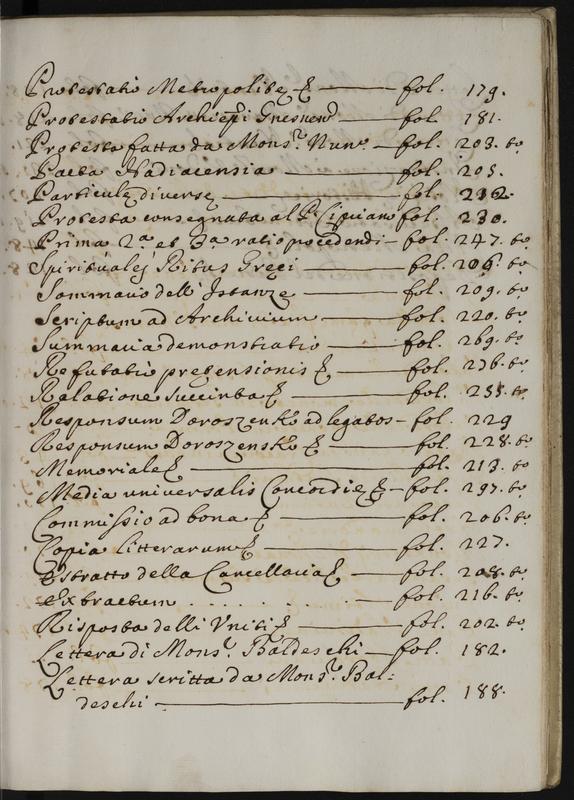 Protestatio Metropolitę &c ——— fol. 179.
Protestatio Archiepi Gnesnen ——— fol 181.
Protesta fatta da Mons.r Nun.o — fol. 203. to
Pacta Hadiacensia ——— fol. 205.
Particulę diversę ——— fol. 232.
Protesta consegnata al P. Cipriano fol. 230.
Prima 2.a et 3.a ratio procedendi — fol. 247. to
Spirituales Ritus Gręci ——— fol. 206. to
Sommario dell' Istanze ——— fol. 209. to
Scriptum ad Archivium ——— fol. 220. to
Summaria demonstratio ——— fol. 269. to
Refutatio pretensionis &c ——— fol. 276. to
Relatione succinta &c ——— fol. 255. to
Responsum Doroszensko ad legatos — fol. 229
Responsum Doroszensko &c ——— fol. 228. to
Memoriale &c ——— fol. 213. to
Media universalis Concordię &c — fol. 297. to
Commissio ad bona &c ——— fol. 206. to
Copia litterarum &c ——— fol. 227.
Estratto della Cancellaria &c — fol. 208. to
Extractum . . . . . . . — fol. 216. to
Risposta delli Vniti &c ——— fol. 202. to
Lettera di Mons.r Baldeschi — fol. 182.
Lettera scritta da Mons.r Bal:
deschi ——— fol. 188.